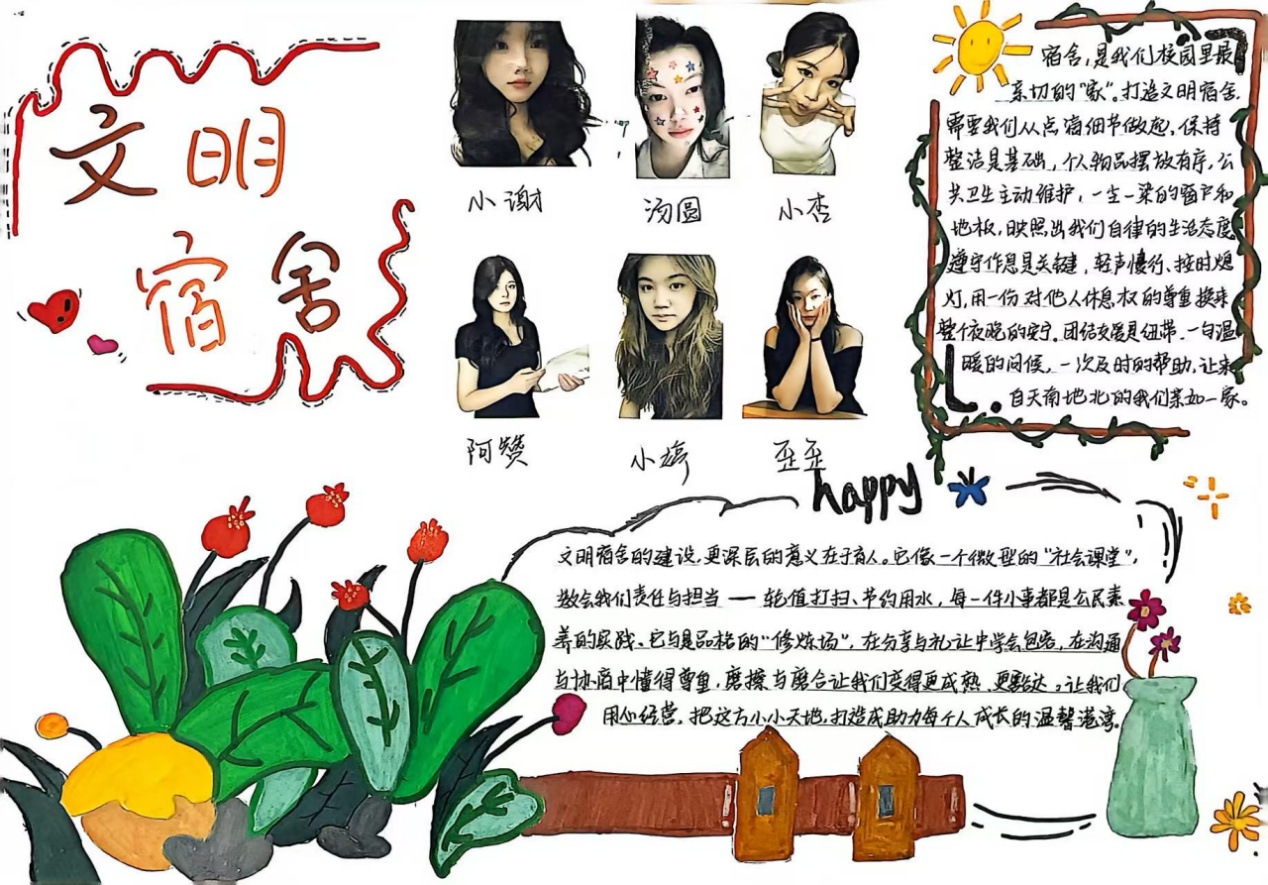 文明
宿舍
小谢
汤圆
小杏
阿赞
小婷
歪歪
宿舍,是我们校园里最
亲切的“家”。打造文明宿舍,
需要我们从点滴细节做起,保持
整洁是基础,个人物品摆放有序,公
共卫生主动维护,一尘一染的窗户和
地板,映照出我们自律的生活态度
遵守作息是关键,轻声慢行、按时熄
灯,用一份对他人休息权的尊重换来
整个夜晚的安宁。团结友爱是纽带,一句温
暖的问候,一次及时的帮助,让来
自天南地北的我们亲如一家。
happy
文明宿舍的建设,更深层的意义在于育人。它像一个微型的“社会课堂”,
教会我们责任与担当——轮值打扫、节约用水,每一件小事都是公民素
养的实践。它与是品格的“修炼场”,在分享与礼让中学会包容,在沟通
与协商中懂得尊重,磨擦与磨合让我们变得更成熟、更豁达。让我们
用心经营,把这方小小天地,打造成助力每个人成长的温馨港湾。